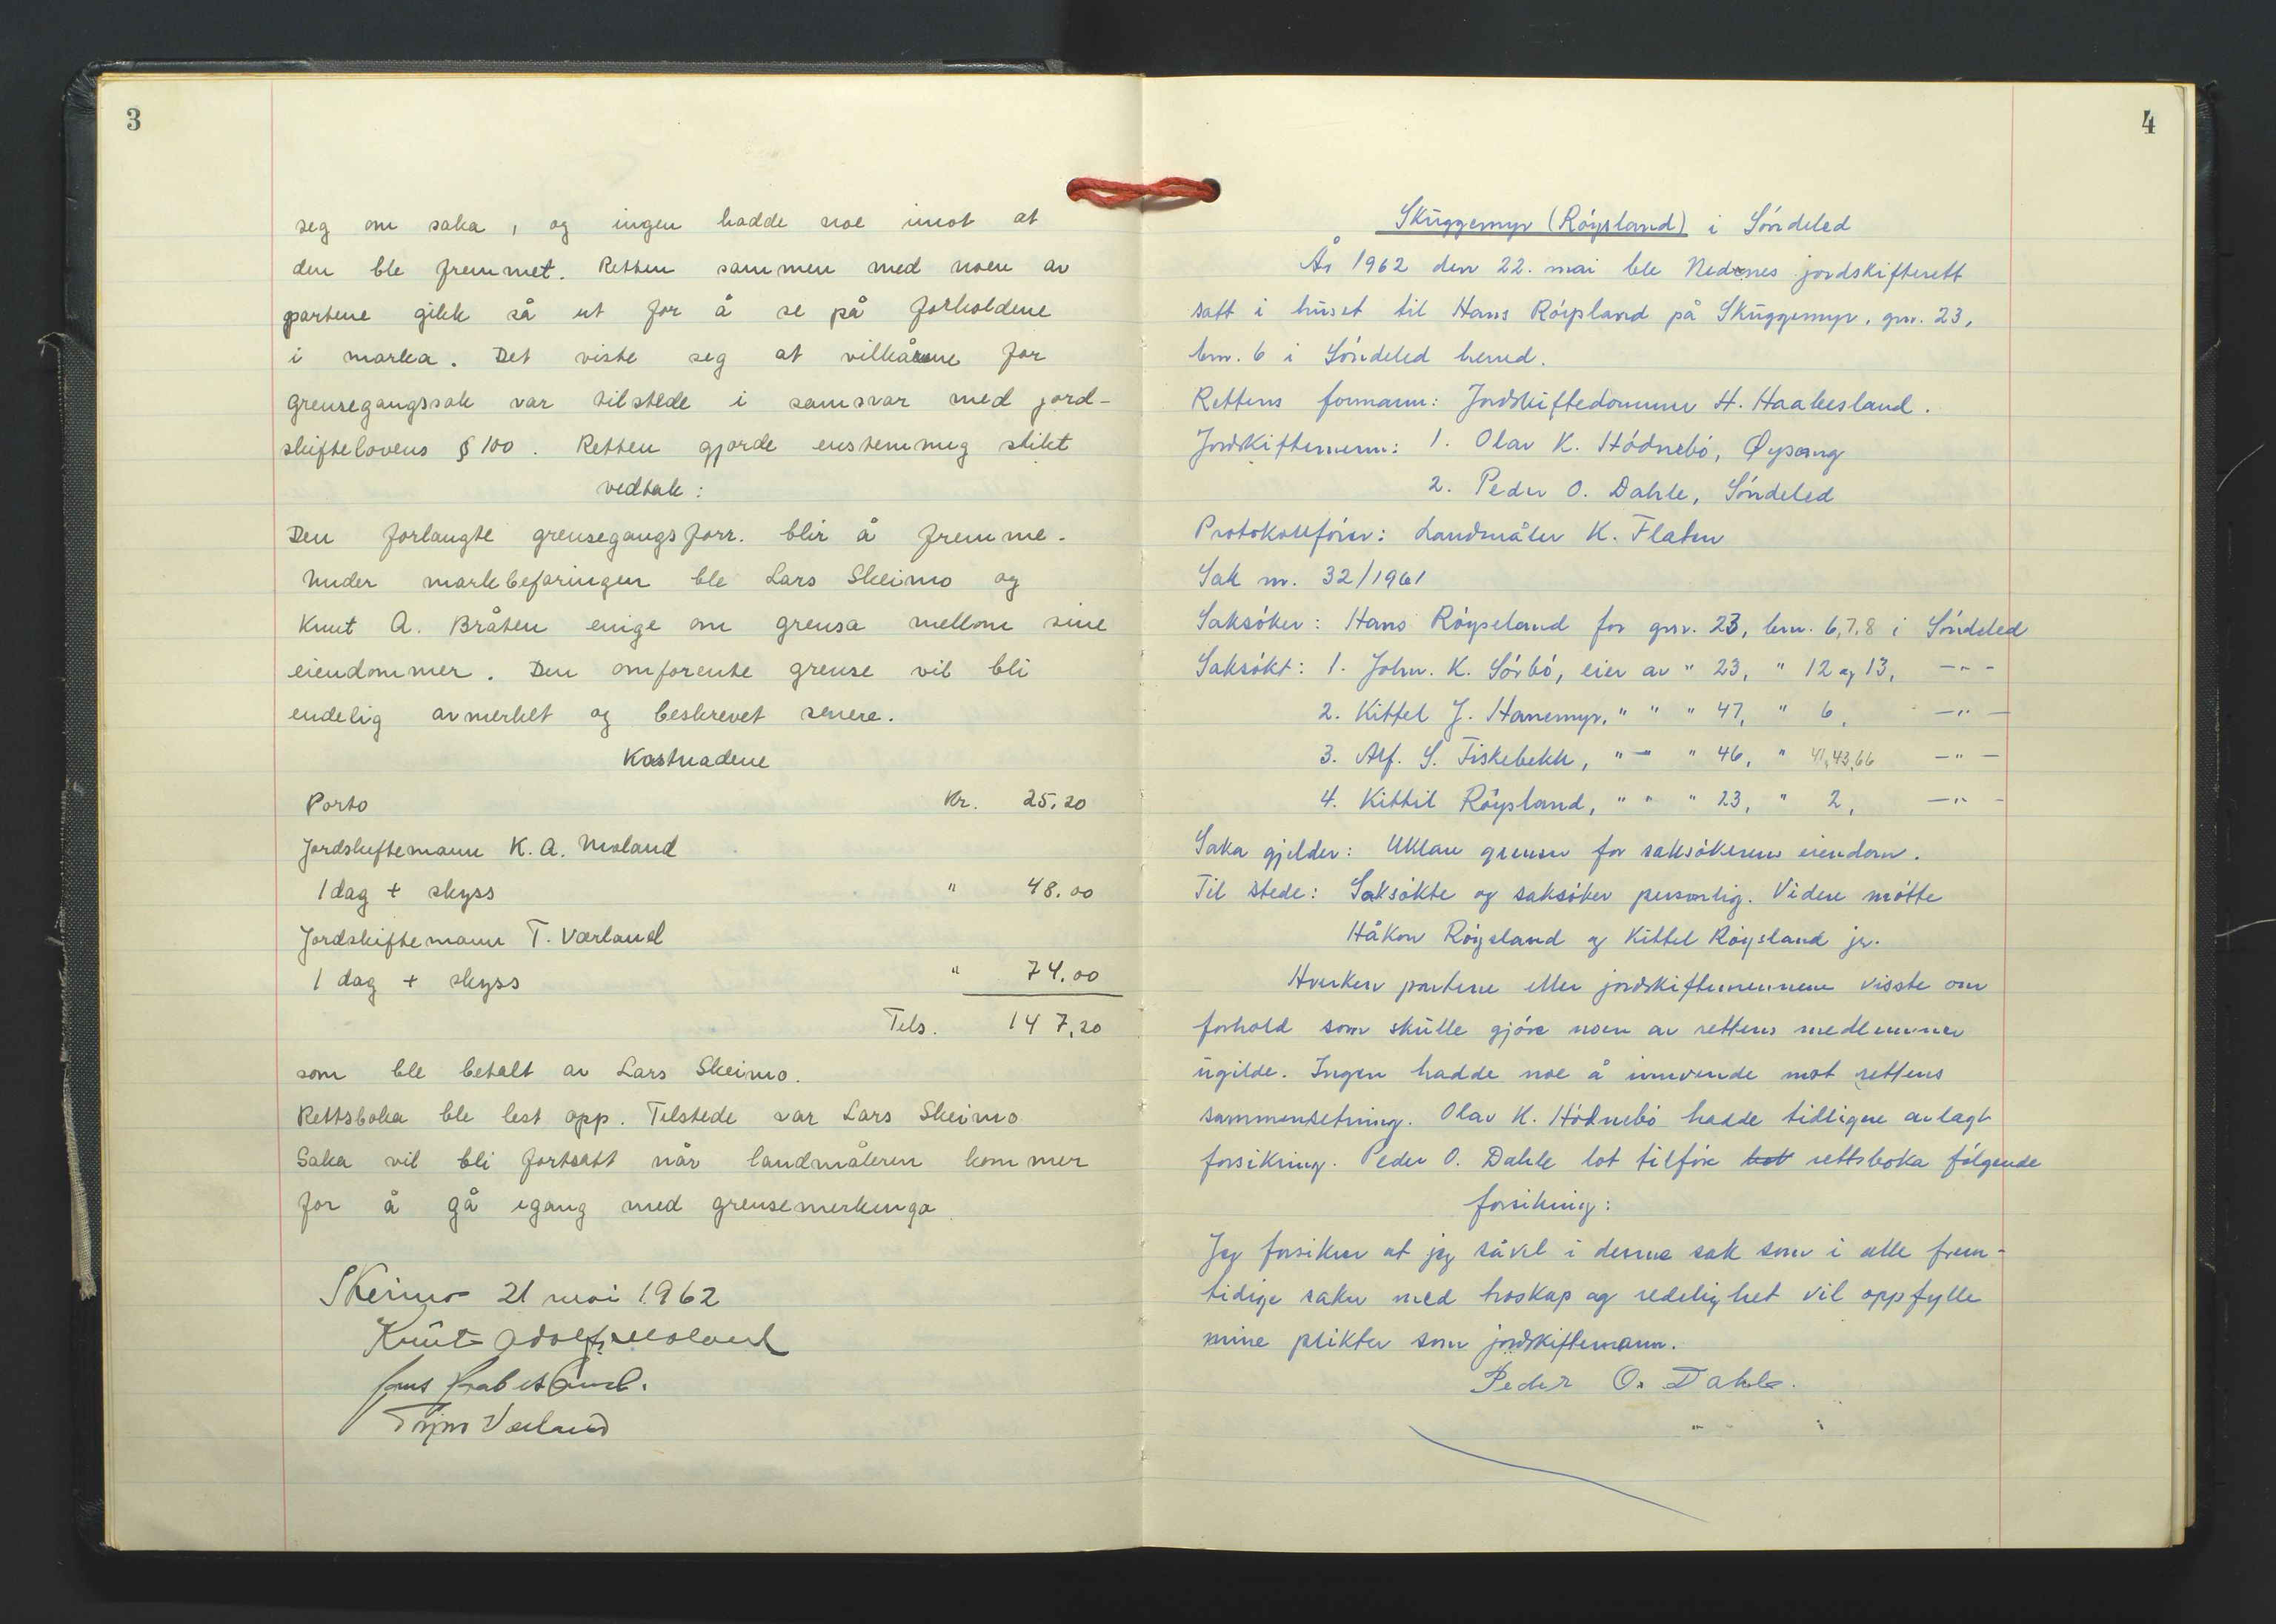 3
seg om saka, og ingen hadde noe imot at
den ble fremmet. Retten sammen med noen av
partene gikk så ut for å se på forholdene
i marka. Det viste seg at vilkårene for
grensegangssak var tilstede i samsvar med jord-
skiftelovens § 100. Retten gjorde enstemmig slikt
vedtak:
Den forlangte grensegangsforr. blir å fremme.
Under markbefaringen ble Lars Skeimo og
Knut A. Bråten enige om grensa mellom sine
eiendommer. Den omforente grense vil bli
endelig avmerket og beskrevet senere.
Kostnadene
Porto Kr. 25,20
Jordskiftemann K. A. Moland
1 dag + skyss " 48.00
Jordskiftemann T. Værland
1 dag + skyss " 74,00
Tils. 147,20
som ble betalt av Lars Skeimo.
Rettsboka ble lest opp. Tilstede var Lars Skeimo
Saka vil bli fortsatt når landmåleren kommer
for å gå igang med grensemerkinga
Skeimo 21 mai 1962
Knut Adolf Moland
Værland
4
Skuggemyr (Röysland) i Söndeled
År 1962 den 22. mai ble Nedenes jordskifterett
satt i huset til Hans Röysland på Skuggemyr, gnr. 23,
bnr. 6 i Söndeled herred.
Rettens formann: Jordskiftedommer H. Haabesland.
Jordskiftemenn: 1. Olav K. Hödnebö, Øysang
2. Peder O. Dahle, Söndeled
Protokollförer: Landmåler K. Flaten
Sak nr. 32/1961
Saksöker: Hans Röyseland for gnr. 23, bnr. 6,7,8 i Söndeled
Saksökt: 1. John. K. Sörbö, eier av " 23, " 12 og 13, - " -
2. Kittel J. Hanemyr, " " " 47, " 6, - " -
3. Alf. S. Fiskebekk, " - " 46, " 41,43,66 - " -
4. Kittil Röysland, " " " 23, " 2, - " -
Saka gjelder: Uklare grenser for saksökerens eiendom.
Til stede: Saksökte og saksöker personlig. Videre mötte
Håkon Röysland og Kittel Röysland jr.
Hverken partene eller jordskiftemennene visste om
forhold som skulle gjöre noen av rettens medlemmer
ugilde. Ingen hadde noe å innvende mot rettens
sammensetning. Olav K. Hödnebö hadde tidligere avlagt
forsikring. Peder O. Dahle lot tilföre bok rettsboka fölgende
forsikring:
Jeg forsikrer at jeg såvel i denne sak som i alle frem-
tidige saker med troskap og redelighet vil oppfylle
mine plikter som jordskiftemann.
Peder O. Dahle.